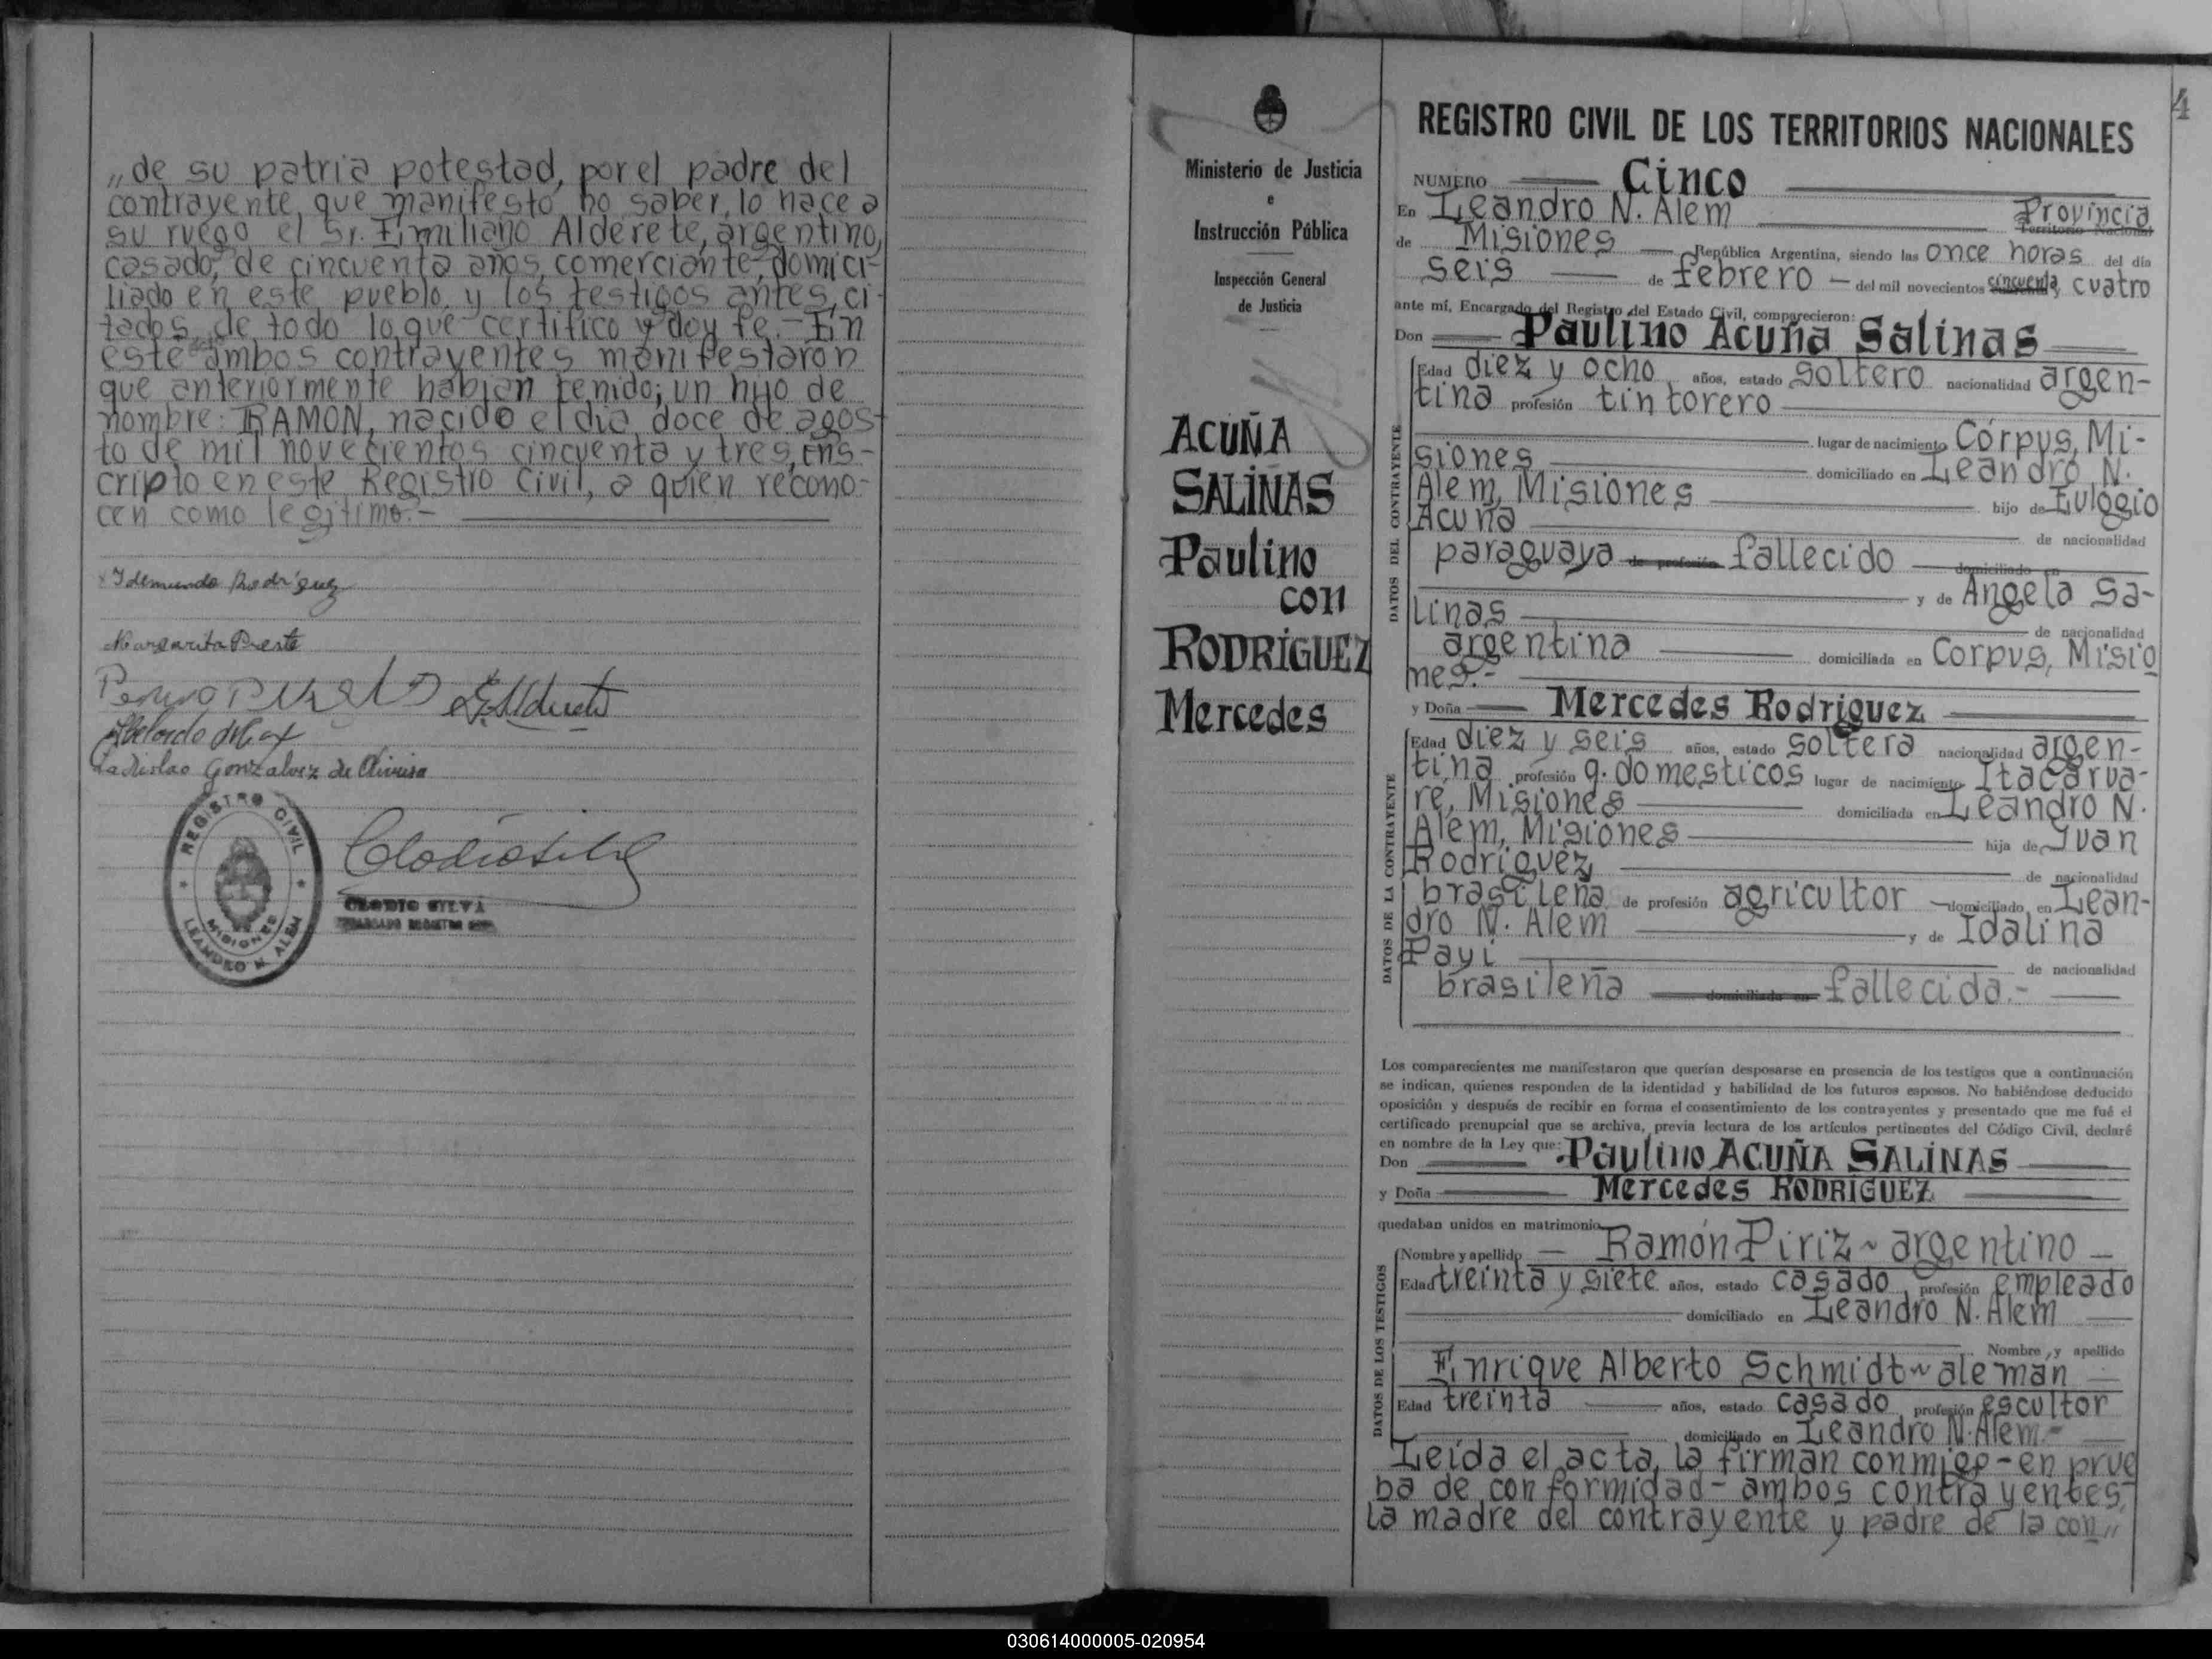 „de su patria potestad, por el padre del
contrayente, que manifestó no saber, lo hace a
su ruego el Sr. Emiliano Alderete, argentino,
casado, de cincuenta años, comerciante, domici-
liado en este pueblo, y los testigos antes ci-
tados, de todo lo que certifico y doy fe.- En
este ambos contrayentes manifestaron
que anteriormente habían tenido; un hijo de
nombre: RAMON, nacido el día doce de agos-
to de mil novecientos cincuenta y tres, ins-
cripto en este Registro Civil, a quien recono-
cen como legítimo.-
Idemundo Rodríguez
Margarita Preste
Abelardo
Ladislao Gonzalvez de Oliveira
REGISTRO CIVIL
MISIONES
LEANDRO N. ALEM
CLODIO SILVA
ENCARGADO REGISTRO CIVIL
4
Ministerio de Justicia
e
Instrucción Pública
Inspección General
de Justicia
ACUÑA
SALINAS
Paulino
con
RODRÍGUEZ
Mercedes
REGISTRO CIVIL DE LOS TERRITORIOS NACIONALES
NUMERO Cinco
En Leandro N. Alem Provincia Territorio Nacional
de Misiones República Argentina, siendo las once horas del día
seis de febrero del mil novecientos cincuenta cuatro
ante mí, Encargado del Registro del Estado Civil, comparecieron:
Don Paulino Acuña Salinas
DATOS DEL CONTRAYENTE
Edad diez y ocho años, estado soltero nacionalidad argen-
tina profesión tintorero
lugar de nacimiento Corpus, Mi-
siones domiciliado en Leandro N.
Alem, Misiones hijo de Eulogio
Acuña de nacionalidad
paraguaya de profesión fallecido domiciliado en
y de Angela Sa-
linas de nacionalidad
argentina domiciliada en Corpus, Misio
nes.-
y Doña Mercedes Rodríguez
DATOS DE LA CONTRAYENTE
Edad diez y seis años, estado soltera nacionalidad argen-
tina profesión q. domesticos lugar de nacimiento Itacarua-
ré, Misiones domiciliada en Leandro N.
Alem, Misiones hija de Juan
Rodríguez de nacionalidad
brasileña de profesión agricultor domiciliado en Lean-
dro N. Alem y de Idalina
Payi de nacionalidad
brasileña domiciliada en fallecida.-
Los comparecientes me manifestaron que querían desposarse en presencia de los testigos que a continuación
se indican, quienes responden de la identidad y habilidad de los futuros esposos. No habiéndose deducido
oposición y después de recibir en forma el consentimiento de los contrayentes y presentado que me fué el
certificado prenupcial que se archiva, previa lectura de los artículos pertinentes del Código Civil, declaré
en nombre de la Ley que:
Don Paulino ACUÑA SALINAS
y Doña Mercedes RODRIGUEZ
quedaban unidos en matrimonio
DATOS DE LOS TESTIGOS
Nombre y apellido Ramón Piriz ~ argentino
Edad treinta y siete años, estado casado profesión empleado
domiciliado en Leandro N. Alem
Nombre y apellido
Enrique Alberto Schmidt ~ alemán
Edad treinta años, estado casado profesión escultor
domiciliado en Leandro N. Alem.-
Leída el acta, la firman conmigo - en prue
ba de conformidad - ambos contrayentes,
la madre del contrayente y padre de la con„
030614000005-020954